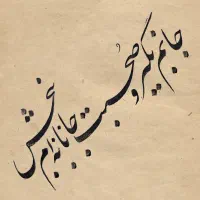 جانم بگیر و صحبت جانانه‌ام ببخش